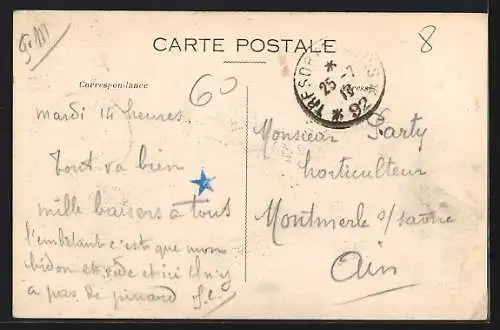 F.M
CARTE POSTALE
8
Correspondance
60
TRESOR ET POSTES * 92 *
25 - 7
Mardi 14 heures.
Tout va bien
mille baisers à tous
l'embêtant c'est que mon
bidon est vide et ici il n'y
a pas de pinard
Monsieur Party
horticulteur
Montmerle s/saône
Ain